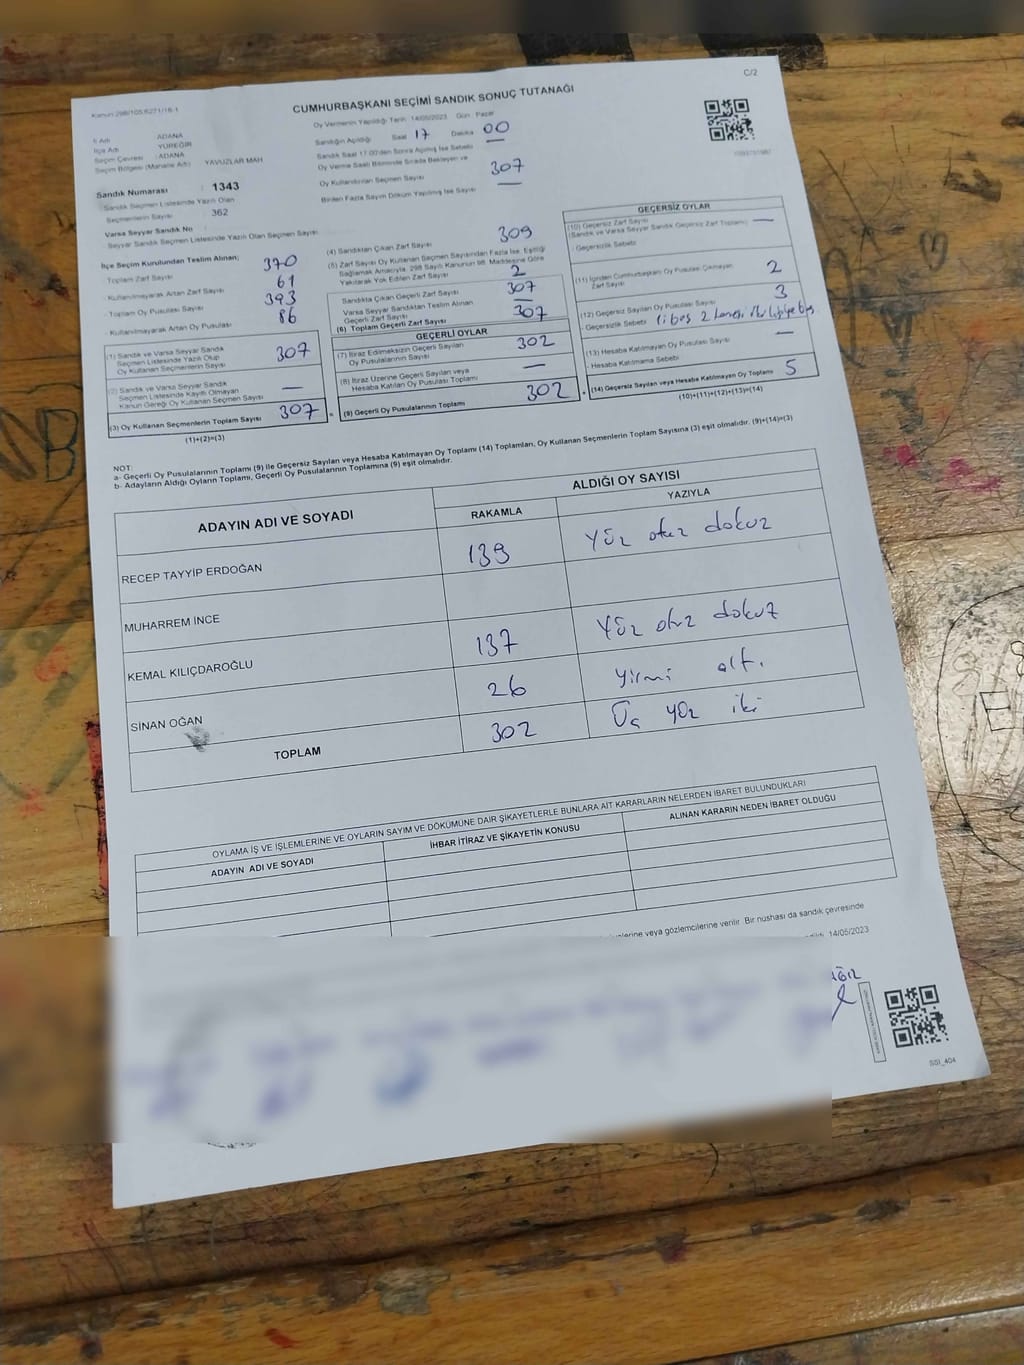 C/2
Kanun 298/105,6271/18-1
CUMHURBAŞKANI SEÇİMİ SANDIK SONUÇ TUTANAĞI
İl Adı : ADANA
İlçe Adı : YÜREĞİR
Seçim Çevresi : ADANA
Seçim Bölgesi (Mahalle Adı) : YAVUZLAR MAH
Sandık Numarası : 1343
Sandık Seçmen Listesinde Yazılı Olan
Seçmenlerin Sayısı : 362
Varsa Seyyar Sandık No :
Seyyar Sandık Seçmen Listesinde Yazılı Olan Seçmen Sayısı
Oy Vermenin Yapıldığı Tarih : 14/05/2023 Gün : Pazar
Sandığın Açıldığı Saat 17 Dakika 00
Sandık Saat 17.00'den Sonra Açılmış İse Sebebi —
Oy Verme Saati Bitiminde Sırada Bekleyen ve
Oy Kullandırılan Seçmen Sayısı 307
Birden Fazla Sayım Döküm Yapılmış İse Sayısı —
İlçe Seçim Kurulundan Teslim Alınan;
- Toplam Zarf Sayısı 370
- Kullanılmayarak Artan Zarf Sayısı 61
- Toplam Oy Pusulası Sayısı 393
- Kullanılmayarak Artan Oy Pusulası 86
(1) Sandık ve Varsa Seyyar Sandık
Seçmen Listesinde Yazılı Olup
Oy Kullanan Seçmenlerin Sayısı 307
(2) Sandık ve Varsa Seyyar Sandık
Seçmen Listesinde Kayıtlı Olmayan
Kanun Gereği Oy Kullanan Seçmen Sayısı —
(3) Oy Kullanan Seçmenlerin Toplam Sayısı 307
(1)+(2)=(3)
(4) Sandıktan Çıkan Zarf Sayısı 309
(5) Zarf Sayısı Oy Kullanan Seçmen Sayısından Fazla İse, Eşitliği
Sağlamak Amacıyla, 298 Sayılı Kanunun 98. Maddesine Göre
Yakılarak Yok Edilen Zarf Sayısı 2
Sandıkta Çıkan Geçerli Zarf Sayısı 307
Varsa Seyyar Sandıktan Teslim Alınan
Geçerli Zarf Sayısı —
(6) Toplam Geçerli Zarf Sayısı 307
GEÇERLİ OYLAR
(7) İtiraz Edilmeksizin Geçerli Sayılan
Oy Pusulalarının Sayısı 302
(8) İtiraz Üzerine Geçerli Sayılan veya
Hesaba Katılan Oy Pusulası Toplamı —
(9) Geçerli Oy Pusulalarının Toplamı 302
GEÇERSİZ OYLAR
(10) Geçersiz Zarf Sayısı —
(Sandık ve Varsa Seyyar Sandık Geçersiz Zarf Toplamı)
Geçersizlik Sebebi
(11) İçinden Cumhurbaşkanı Oy Pusulası Çıkmayan
Zarf Sayısı 2
(12) Geçersiz Sayılan Oy Pusulası Sayısı 3
- Geçersizlik Sebebi
(13) Hesaba Katılmayan Oy Pusulası Sayısı —
- Hesaba Katılmama Sebebi
(14) Geçersiz Sayılan veya Hesaba Katılmayan Oy Toplamı 5
(10)+(11)+(12)+(13)=(14)
NOT:
a- Geçerli Oy Pusulalarının Toplamı (9) ile Geçersiz Sayılan veya Hesaba Katılmayan Oy Toplamı (14) Toplamları, Oy Kullanan Seçmenlerin Toplam Sayısına (3) eşit olmalıdır. (9)+(14)=(3)
b- Adayların Aldığı Oyların Toplamı, Geçerli Oy Pusulalarının Toplamına (9) eşit olmalıdır.
ADAYIN ADI VE SOYADI
ALDIĞI OY SAYISI
RAKAMLA YAZIYLA
RECEP TAYYİP ERDOĞAN 139 Yüz otuz dokuz
MUHARREM İNCE
KEMAL KILIÇDAROĞLU 137 Yüz otuz dokuz
SİNAN OĞAN 26 Yirmi altı
TOPLAM 302 Üç yüz iki
OYLAMA İŞ VE İŞLEMLERİNE VE OYLARIN SAYIM VE DÖKÜMÜNE DAİR ŞİKAYETLERLE BUNLARA AİT KARARLARIN NELERDEN İBARET BULUNDUKLARI
ADAYIN ADI VE SOYADI İHBAR İTİRAZ VE ŞİKAYETİN KONUSU ALINAN KARARIN NEDEN İBARET OLDUĞU
veya gözlemcilerine verilir. Bir nüshası da sandık çevresinde
14/05/2023
SSI_404